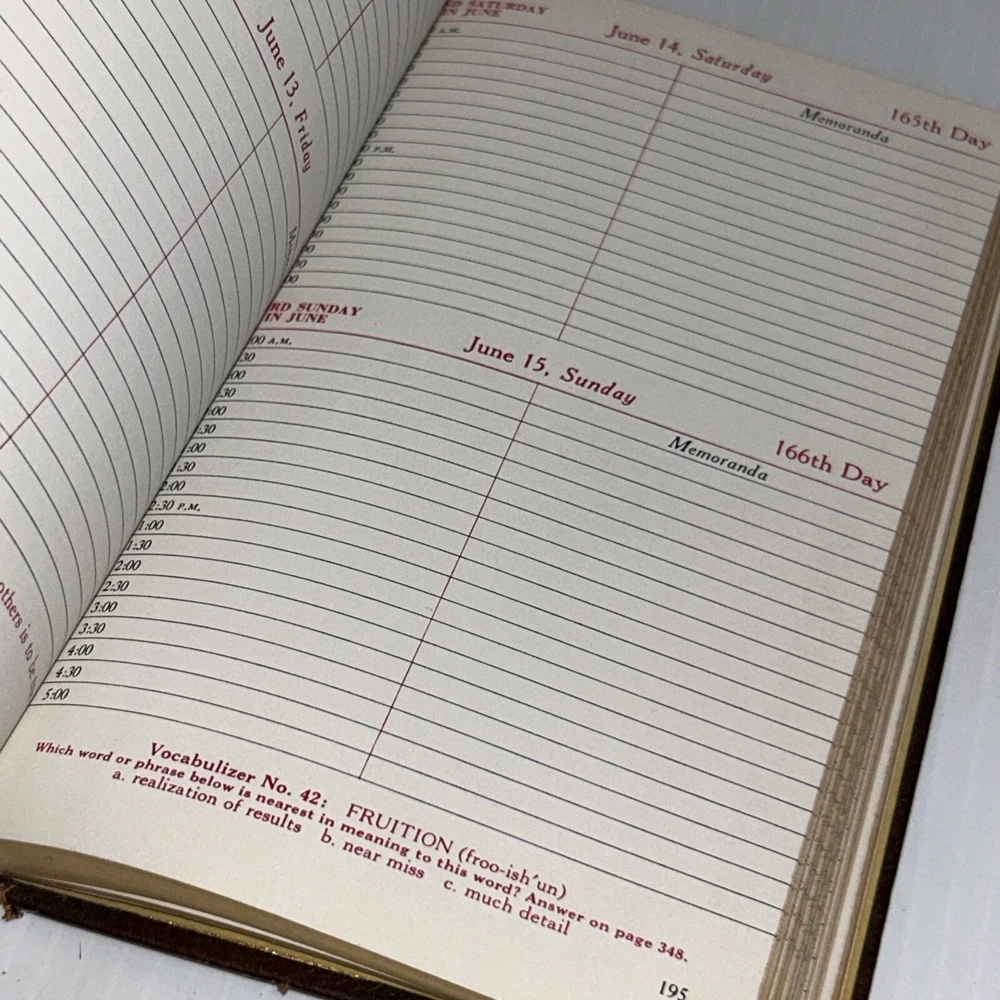 June 13, Friday
others is to be
RD SATURDAY
IN JUNE
June 14, Saturday
165th Day
Memoranda
A.M.
P.M.
RD SUNDAY
IN JUNE
June 15, Sunday
166th Day
Memoranda
:00 A.M.
:30
:00
:30
:00
:30
:00
:30
2:00
2:30 P.M.
1:00
1:30
2:00
2:30
3:00
3:30
4:00
4:30
5:00
Vocabulizer No. 42: FRUITION (froo-ish′un)
Which word or phrase below is nearest in meaning to this word? Answer on page 348.
a. realization of results b. near miss c. much detail
195